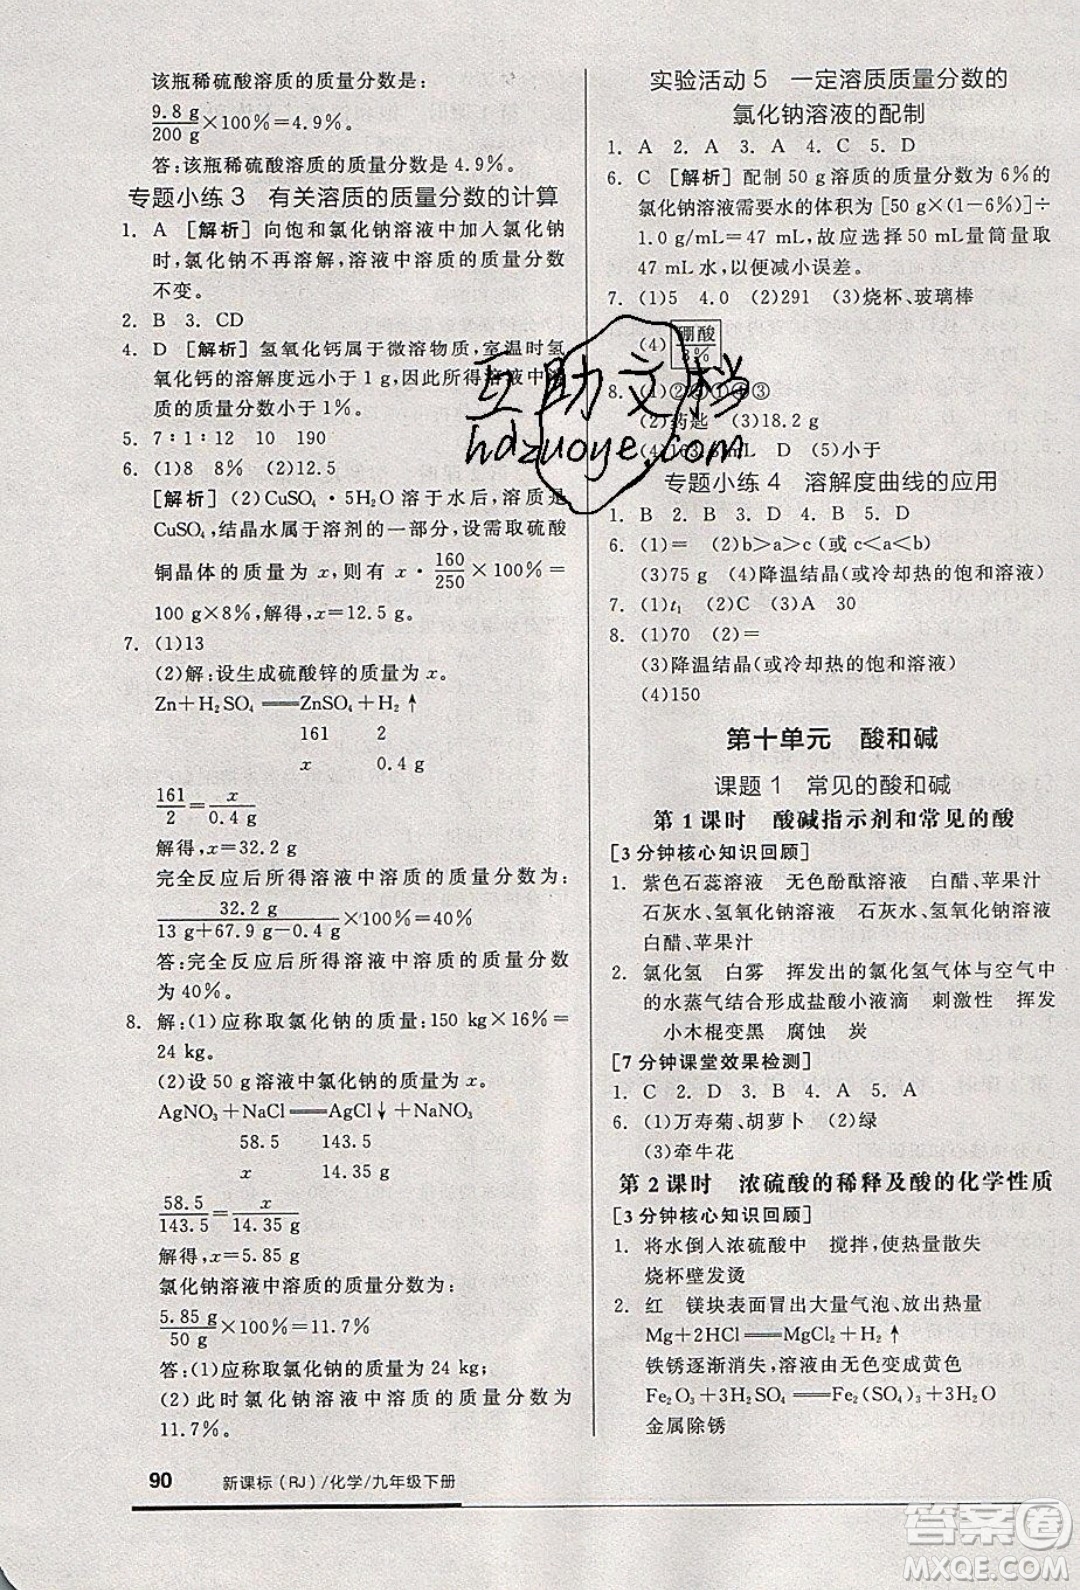 该瓶稀硫酸溶质的质量分数是:
9.8 g/200 g×100%=4.9%。
答:该瓶稀硫酸溶质的质量分数是 4.9%。
专题小练 3 有关溶质的质量分数的计算
1. A [解析] 向饱和氯化钠溶液中加入氯化钠
时,氯化钠不再溶解,溶液中溶质的质量分数
不变。
2. B 3. CD
4. D [解析] 氢氧化钙属于微溶物质,室温时氢
氧化钙的溶解度远小于 1 g,因此所得溶液中溶
质的质量分数小于 1%。
5. 7∶1∶12 10 190
6. (1)8 8% (2)12.5
[解析] (2)CuSO₄·5H₂O 溶于水后,溶质是
CuSO₄,结晶水属于溶剂的一部分,设需取硫酸
铜晶体的质量为 x,则有 x·160/250×100%=
100 g×8%,解得,x=12.5 g。
7. (1)13
(2)解:设生成硫酸锌的质量为 x。
Zn+H₂SO₄══ZnSO₄+H₂↑
161 2
x 0.4 g
161/2=x/0.4 g
解得,x=32.2 g
完全反应后所得溶液中溶质的质量分数为:
32.2 g/13 g+67.9 g-0.4 g×100%=40%
答:完全反应后所得溶液中溶质的质量分数
为 40%。
8. 解:(1)应称取氯化钠的质量:150 kg×16%=
24 kg。
(2)设 50 g溶液中氯化钠的质量为 x。
AgNO₃+NaCl══AgCl↓+NaNO₃
58.5 143.5
x 14.35 g
58.5/143.5=x/14.35 g
解得,x=5.85 g
氯化钠溶液中溶质的质量分数为:
5.85 g/50 g×100%=11.7%
答:(1)应称取氯化钠的质量为 24 kg;
(2)此时氯化钠溶液中溶质的质量分数为
11.7%。
实验活动 5 一定溶质质量分数的
氯化钠溶液的配制
1. A 2. D 3. A 4. C 5. D
6. C [解析] 配制 50 g 溶质的质量分数为 6%的
氯化钠溶液需要水的体积为[50 g×(1-6%)]÷
1.0 g/mL=47 mL,故应选择 50 mL 量筒量取
47 mL 水,以便减小误差。
7. (1)5 4.0 (2)291 (3)烧杯、玻璃棒
(4)硼酸 3%
8. (1)
(2)药匙 (3)18.2 g
(4) mL D (5)小于
专题小练 4 溶解度曲线的应用
1. B 2. B 3. D 4. B 5. D
6. (1)= (2)b>a>c(或 c<a<b)
(3)75 g (4)降温结晶(或冷却热的饱和溶液)
7. (1)t₁ (2)C (3)A 30
8. (1)70 (2)=
(3)降温结晶(或冷却热的饱和溶液)
(4)150
第十单元 酸和碱
课题 1 常见的酸和碱
第 1 课时 酸碱指示剂和常见的酸
[3 分钟核心知识回顾]
1. 紫色石蕊溶液 无色酚酞溶液 白醋、苹果汁
石灰水、氢氧化钠溶液 石灰水、氢氧化钠溶液
白醋、苹果汁
2. 氯化氢 白雾 挥发出的氯化氢气体与空气中
的水蒸气结合形成盐酸小液滴 刺激性 挥发
小木棍变黑 腐蚀 炭
[7 分钟课堂效果检测]
1. C 2. D 3. B 4. A 5. A
6. (1)万寿菊、胡萝卜 (2)绿
(3)牵牛花
第 2 课时 浓硫酸的稀释及酸的化学性质
[3 分钟核心知识回顾]
1. 将水倒入浓硫酸中 搅拌,使热量散失
烧杯壁发烫
2. 红 镁块表面冒出大量气泡、放出热量
Mg+2HCl══MgCl₂+H₂↑
铁锈逐渐消失,溶液由无色变成黄色
Fe₂O₃+3H₂SO₄══Fe₂(SO₄)₃+3H₂O
金属除锈
90 新课标(RJ)/化学/九年级下册
互助文档
hdzuoye.com
答案圈
MXQE.COM